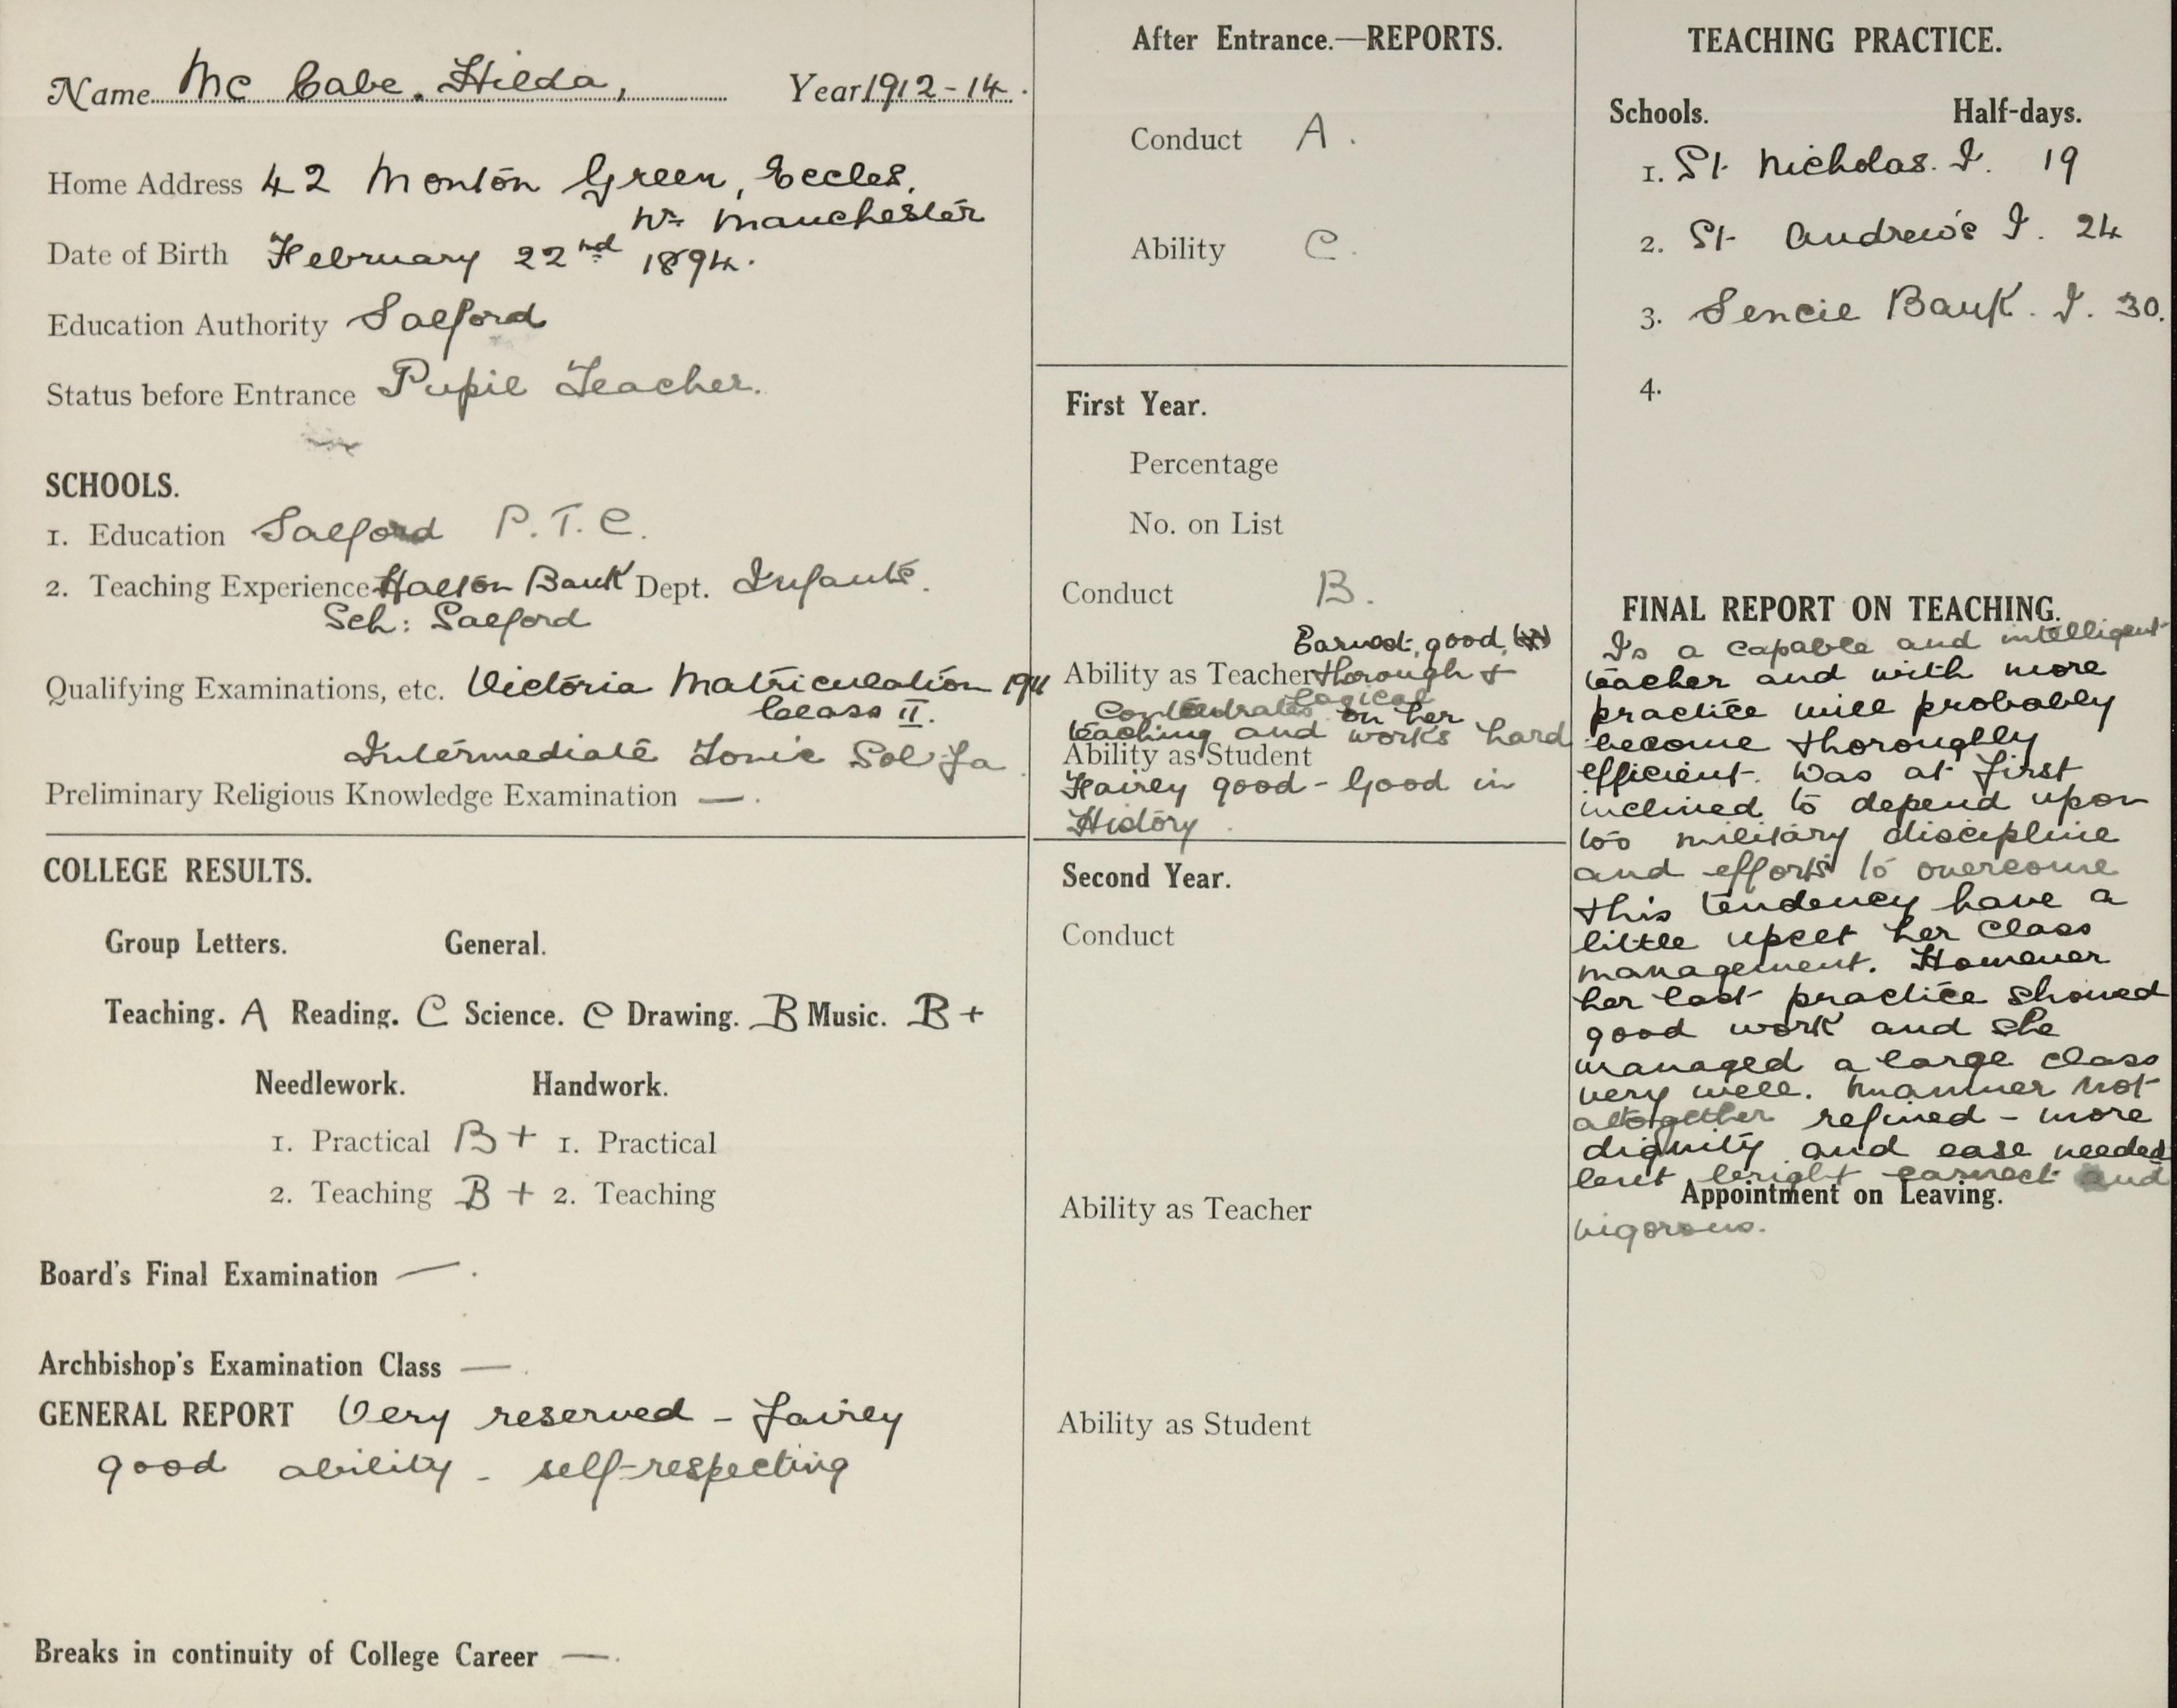 Name Mc Cabe. Hilda, Year 1912-14.
Home Address 42 Monton Green, Eccles.
Nr Manchester
Date of Birth February 22nd 1894.
Education Authority Salford
Status before Entrance Pupil Teacher.
SCHOOLS.
1. Education Salford P.T.C.
2. Teaching Experience Halton Bank Dept. Infants.
Sch: Salford
Qualifying Examinations, etc. Victoria Matriculation 1911
Class II.
Intermediate Tonic Sol Fa
Preliminary Religious Knowledge Examination —.
COLLEGE RESULTS.
Group Letters. General.
Teaching. A Reading. C Science. C Drawing. B Music. B+
Needlework. Handwork.
1. Practical B+ 1. Practical
2. Teaching B+ 2. Teaching
Board's Final Examination —.
Archbishop's Examination Class —.
GENERAL REPORT Very reserved - fairly
good ability - self-respecting
Breaks in continuity of College Career —.
After Entrance.—REPORTS.
Conduct A.
Ability C.
First Year.
Percentage
No. on List
Conduct B.
Earnest, good,
Ability as Teacher thorough +
logical
Concentrates on her
teaching and works hard
Ability as Student
Fairly good - Good in
History.
Second Year.
Conduct
Ability as Teacher
Ability as Student
TEACHING PRACTICE.
Schools. Half-days.
1. St. Nicholas. I. 19
2. St. Andrew's I. 24
3. Sencie Bank. I. 30.
4.
FINAL REPORT ON TEACHING.
Is a capable and intelligent
teacher and with more
practice will probably
become thoroughly
efficient. Was at first
inclined to depend upon
too military discipline
and efforts to overcome
this tendency have a
little upset her class
management. However
her last practice showed
good work and she
managed a large class
very well. Manner not
altogether refined - more
dignity and ease needed
but bright earnest and
Appointment on Leaving.
vigorous.